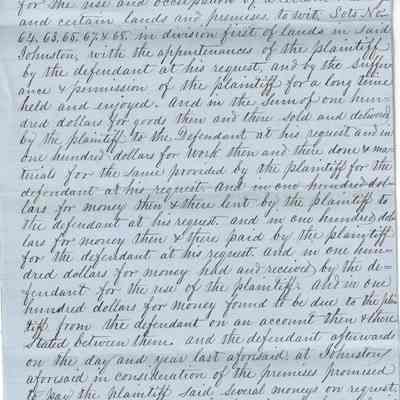 for the use and occupation of a certain
and certain lands and premises, to wit, Lots Nos
64, 63, 65, 67 & 68. in division first of lands in said
Johnston, with the appurtenances of the plaintiff
by the defendant at his request, and by the suffer-
ance & permission of the plaintiff for a long time
held and enjoyed. And in the Sum of one hun-
dred dollars for goods then and there sold and delivered
by the plaintiff to the Defendant at his request and in
one hundred dollars for work then and there done & ma-
terials for the same provided by the plaintiff for the
defendant at his request. and in one hundred dol-
lars for money then & there lent by the plaintiff to
the defendant at his request. and in one hundred dol-
lars for money then & there paid by the plaintiff
for the defendant at his request. and in one hun-
dred dollars for money had and received by the de-
fendant for the use of the plaintiff. And in one
hundred dollars for money found to be due to the plain
tiff from the defendant on an account then & there
Stated between them. and the defendant afterwards
on the day and year last aforsaid at Johnston
aforsaid in consideration of the premises promised
to pay the plaintiff Said Several moneys on request,